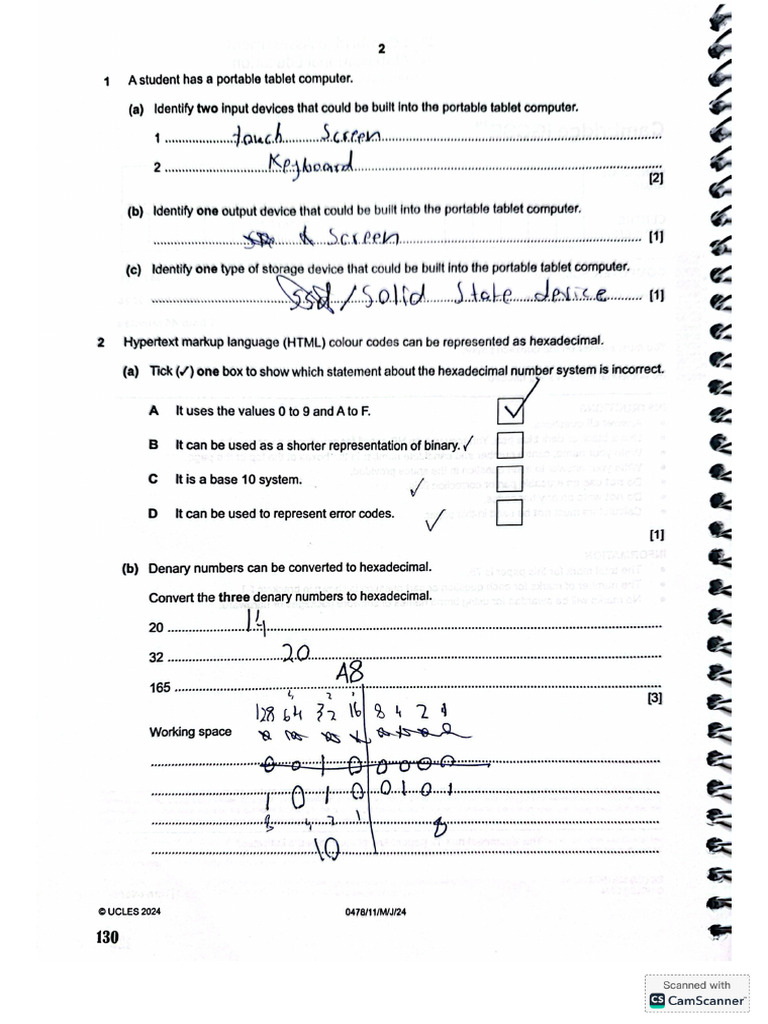 2
1 A student has a portable tablet computer.
(a) Identify two input devices that could be built into the portable tablet computer.
1 touch Screen
2 Keyboard
[2]
(b) Identify one output device that could be built into the portable tablet computer.
Screen [1]
(c) Identify one type of storage device that could be built into the portable tablet computer.
ssd / Solid State device [1]
2 Hypertext markup language (HTML) colour codes can be represented as hexadecimal.
(a) Tick (✓) one box to show which statement about the hexadecimal number system is incorrect.
A It uses the values 0 to 9 and A to F. ✓
B It can be used as a shorter representation of binary. ✓
C It is a base 10 system. ✓
D It can be used to represent error codes. ✓
[1]
(b) Denary numbers can be converted to hexadecimal.
Convert the three denary numbers to hexadecimal.
20 14
32 20
165 A8
[3]
4 2 1
128 64 32 16 8 4 2 1
Working space
0 0 1 0 0 0 0 0
1 0 1 0 0 1 0 1
8 4 2 1 8
10
© UCLES 2024 0478/11/M/J/24
130
Scanned with
CS CamScanner